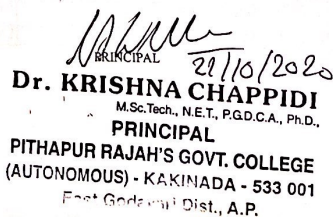 PRINCIPAL
21/10/2020
Dr. KRISHNA CHAPPIDI
M.Sc.Tech., N.E.T., P.G.D.C.A., Ph.D.,
PRINCIPAL
PITHAPUR RAJAH'S GOVT. COLLEGE
(AUTONOMOUS) - KAKINADA - 533 001
East Godavari Dist., A.P.